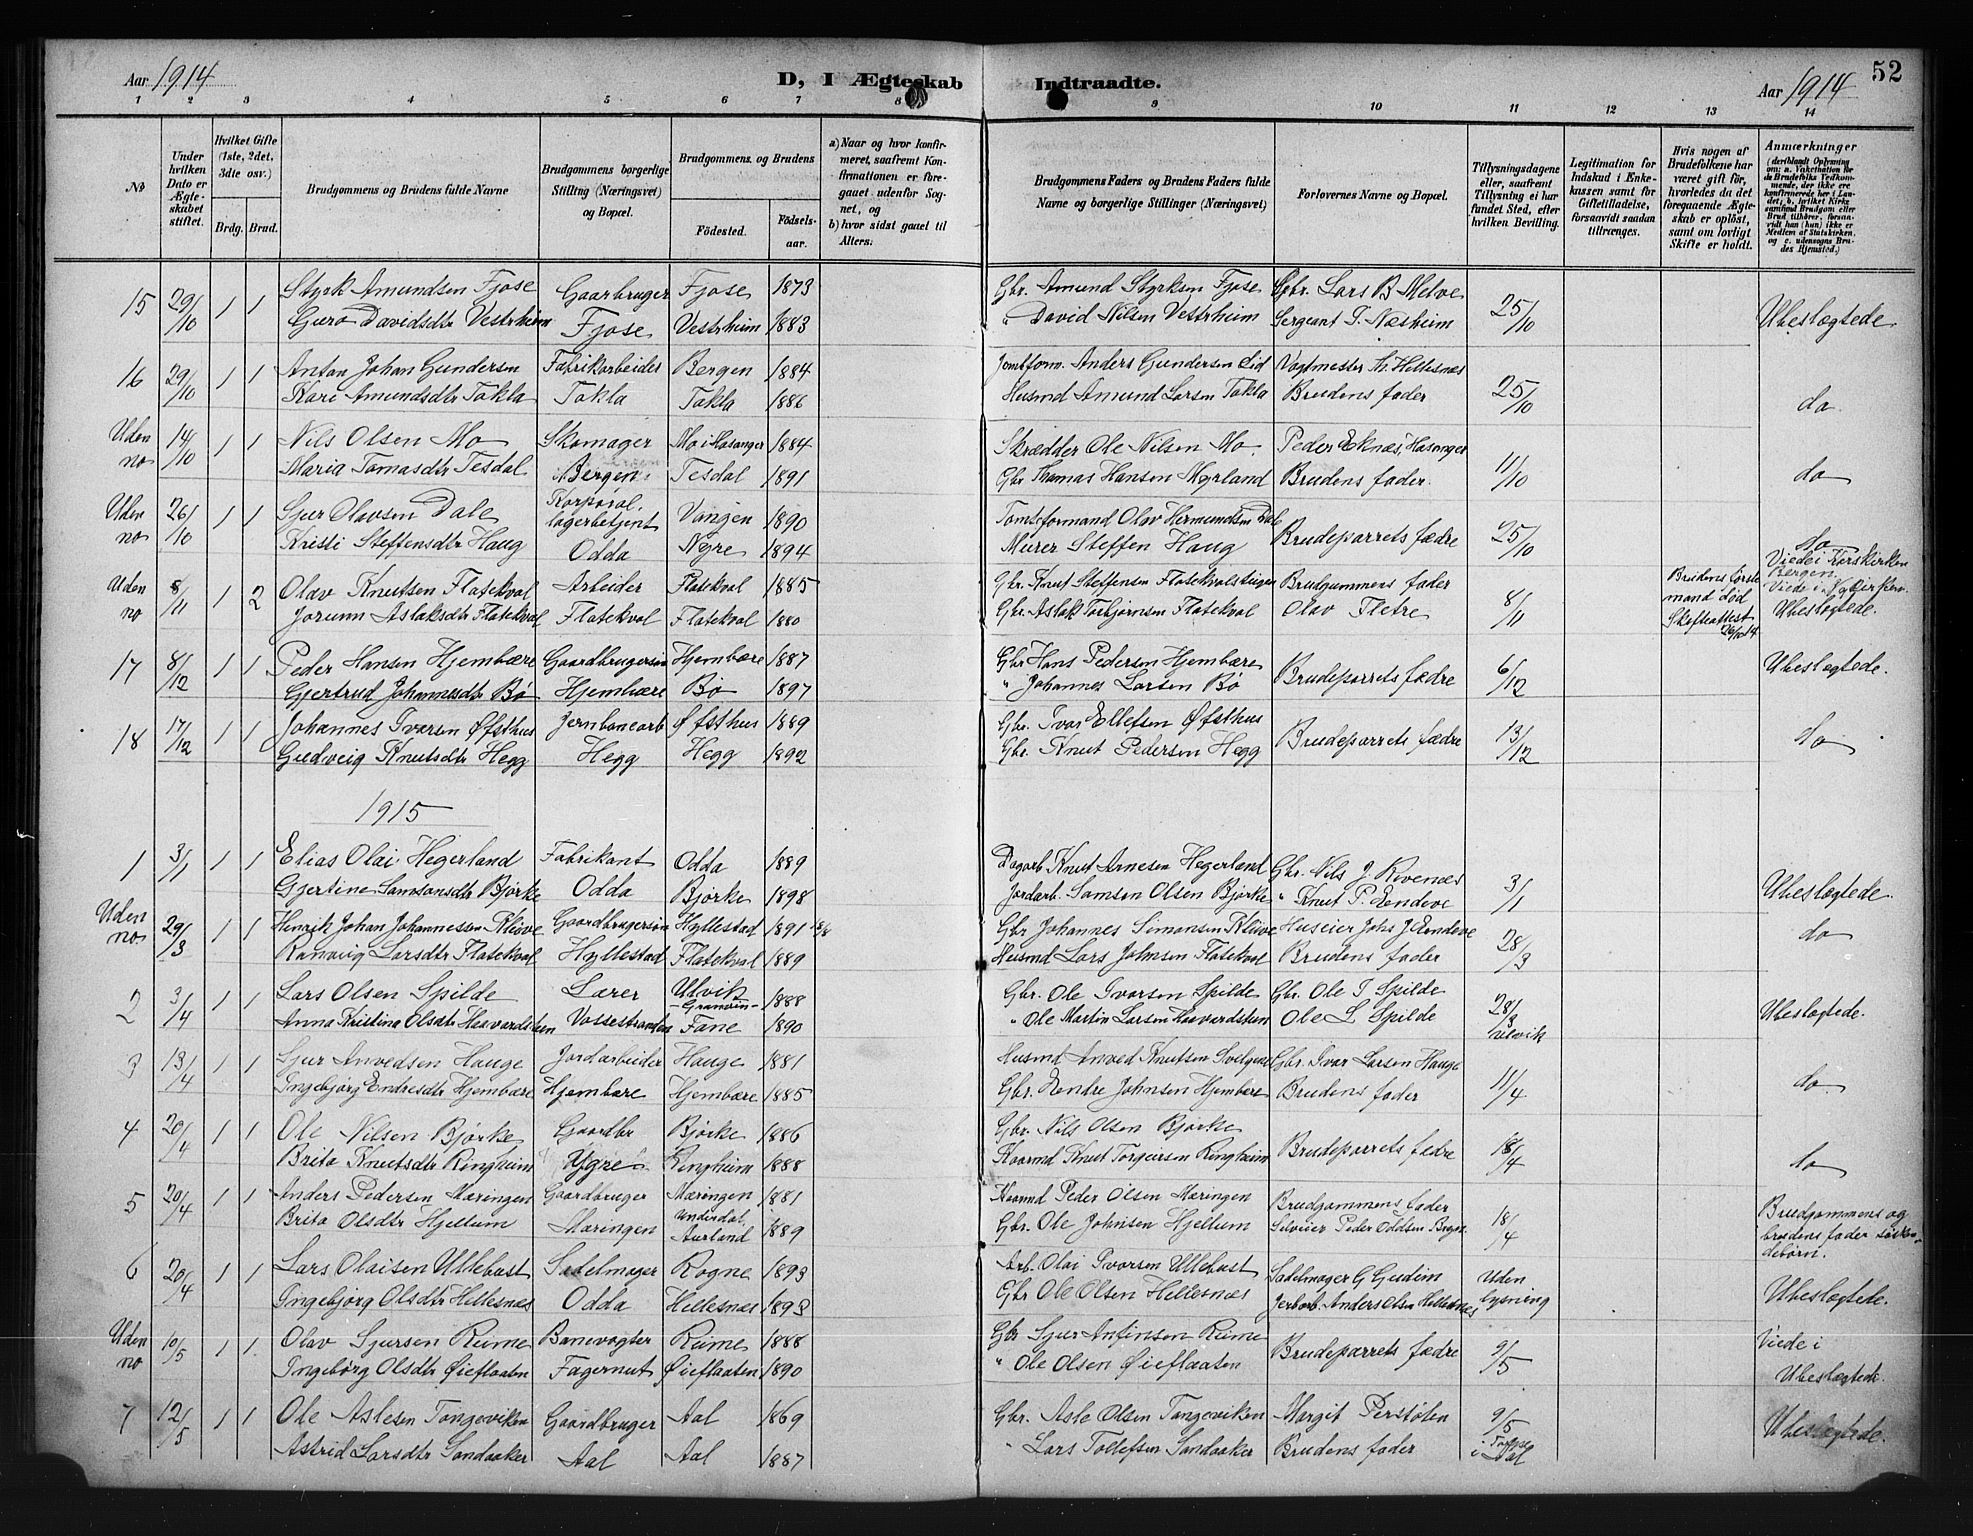 Aar 1914
D, I Ægteskab Indtraadte.
Aar 1914
52
1 2 3 4 5 6 7 8 9 10 11 12 13 14
No
Under hvilken Dato er Ægteskabet stiftet.
Hvilket Gifte (1ste, 2det, 3die osv.)
Brdg. Brud.
Brudgommens og Brudens fulde Navne
Brudgommens borgerlige Stilling (Næringsvei) og Bopæl.
Brudgommens og Brudens
Fødested.
Fødselsaar.
a) Naar og hvor konfirmeret, saafremt Konfirmationen er foregaaet udenfor Sognet, og
b) hvor sidst gaaet til Alters.
Brudgommens Faders og Brudens Faders fulde Navne og borgerlige Stillinger (Næringsvei)
Forlovernes Navne og Bopæl.
Tillysningsdagene eller, saafremt Tillysning ei har fundet Sted, efter hvilken Bevilling.
Legitimation for Indskud i Enkekassen samt for Giftetilladelse, forsaavidt saadan tiltrænges.
Hvis nogen af Brudefolkene har været gift før, hvorledes da det foregaaende Ægteskab er opløst, samt om lovligt Skifte er holdt.
Anmærkninger
15 29/10 1 1 Styrk Amundsen Fjose Gaarbruger Fjose 1873 Gbr. Amund Styrksen Fjose Gbr. Lars B Melve 25/10 Ubeslægtede
Guro Davidsdtr Vestrheim Fjose Vestrheim 1883 " David Nilsen Vestrheim Sergeant T. Næsheim
16 29/10 1 1 Anton Johan Gundersen Fabrikarbeider Bergen 1884 Anders Gundersen Lid Vagtmester Th. Hellesnæs 25/10 do
Kari Amundsdtr Takla Takla Takla 1886 Husmd Amund Larsen Takla Brudens fader
Uden no 14/10 1 1 Nils Olsen Mo Skomager Mo i Hosanger 1884 Skrædder Ole Nilsen Mo. Peder Eknæs, Hosanger 11/10 do
Maria Tomasdtr Tesdal Bergen Tesdal 1891 Gbr Thomas Hansen Myrland Brudens fader.
Uden no 26/10 1 1 Sjur Olavsen Dale Korporal, lagerbetjent Vangen 1890 Tomteformand Olav Hermundsen Dale Brudeparrets fædre 25/10 do
Kristi Steffensdtr Haug Odda Nyre 1894 Murer Steffen Haug Viede i Korskirken Bergen.
Uden no 8/11 1 2 Olav Knutsen Flatekval Arbeider Flatekval 1885 Gbr. Knut Steffensen Flatekvalstuen Brudgummens fader 8/11 Brudens første mand død Skifteattest 26/10 14 Viede i
Jorunn Aslaksdtr Flatekval Flatekval Flatekval 1880 Gbr. Aslak Torbjørnsen Flatekval Olav Fletre Ubeslægtede.
17 8/12 1 1 Peder Hansen Hjembære Gaardbrugersøn Hjembære 1887 Gbr Hans Pedersen Hjembære Brudeparrets fædre 6/12 Ubeslægtede.
Gjertrud Johannesdtr Bø Hjembære Bø 1897 " Johannes Larsen Bø
18 17/12 1 1 Johannes Iversen Øfsthus Jernbanearb Øfsthus 1889 Gbr. Ivar Ellefsen Øfsthus Brudeparrets fædre 13/12 do
Gudveig Knutsdtr Hegg Hegg Hegg 1892 Gbr. Knut Pedersen Hegg
1915
1 3/1 1 1 Elias Olai Hegerland Fabrikant Odda 1889 Dagarb. Knut Arnesen Hegerland Gbr. Nils J. Rivenæs 3/1 Ubeslægtede.
Gjertine Samsonsdtr Bjørke Odda Bjørke 1898 Jordarb. Samson Olsen Bjørke " Knut P. Endeve
Uden no 29/3 1 1 Henrik Johan Johannessen Kleive Gaardbrugersøn Hyllestad 1891 Gbr Johannes Simonsen Kleive Huseier Johs J Endeve 28/3 do
Ranveig Larsdtr Flatekval Hyllestad Flatekval 1889 Husmd Lars Johnsen Flatekval Brudens fader
2 3/4 1 1 Lars Olsen Spilde Lærer Ulvik Granvin 1888 Gbr. Ole Ivarsen Spilde Gbr. Ole I. Spilde 28/3 Ulvik Ubeslægtede.
Anna Kristina Olsdtr Haavardstun Vossestranden Fane 1890 " Ole Martin Larsen Haavardstun Ole L Spilde
3 13/4 1 1 Sjur Anvedsen Hauge Jordarbeider Hauge 1881 Husmd Anved Knutsen Gbr. Ivar Larsen Hauge 11/4 do.
Ingebjørg Endresdtr Hjembære Hjembære Hjembære 1885 Gbr. Endre Johnsen Hjembære Brudens fader
4 20/4 1 1 Ole Nilsen Bjørke Gaardbr Bjørke 1886 Gbr. Nils Olsen Bjørke Brudeparrets fædre 18/4 do
Brita Knutsdtr Ringheim Ygre Ringheim 1888 Kaarmd Knut Torgersen Ringheim
5 20/4 1 1 Anders Pedersen Mæringen Gaardbruger Mæringen 1881 Kaarmd Peder Olsen Mæringen Brudgommens fader 18/4 Brudgommens og brudens fader søskendebørn.
Brita Olsdtr Hjellum Mæringen Underdal Aurland 1889 Gbr. Ole Johnsen Hjellum Selveier Peder Oddsen
6 20/4 1 1 Lars Olaisen Ullebust Sadelmager Rogne 1893 Arb. Olai Ivarsen Ullebust Sadelmager G Gudim Uden lysning Ubeslægtede.
Ingebjørg Olsdtr Hellesnæs Odda Hellesnæs 1893 Gbr Ole Olsen Hellesnæs Jerbarb. Anders Olsen Hellesnæs
Uden no 10/5 1 1 Olav Sjursen Rume Banevogter Rume 1888 Gbr Sjur Anfinsen Rume Brudeparrets fædre 9/5 Viede i
Ingebørg Olsdtr Øieflaaten Fagernut Øieflaaten 1890 " Ole Olsen Øieflaaten Ubeslægtede.
7 12/5 1 1 Ole Aslesen Tangeviken Gaardbruger Aal 1869 Gbr. Asle Olsen Tangeviken Margit Perstølen 9/5 Ubeslægtede.
Astrid Larsdtr Sandaaker Aal Aal 1887 " Lars Tollefsen Sandaaker Brudens fader i Aal